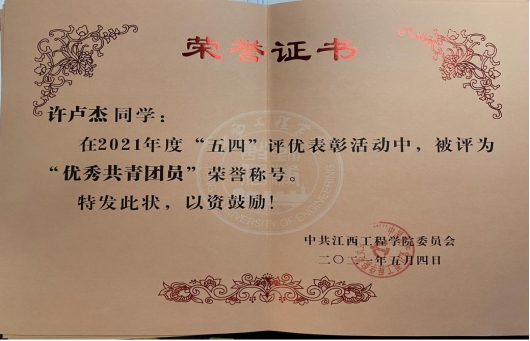 荣誉证书
许卢杰同学：
在2021年度“五四”评优表彰活动中，被评为
“优秀共青团员”荣誉称号。
特发此状，以资鼓励！
中共江西工程学院委员会
二〇二一年五月四日